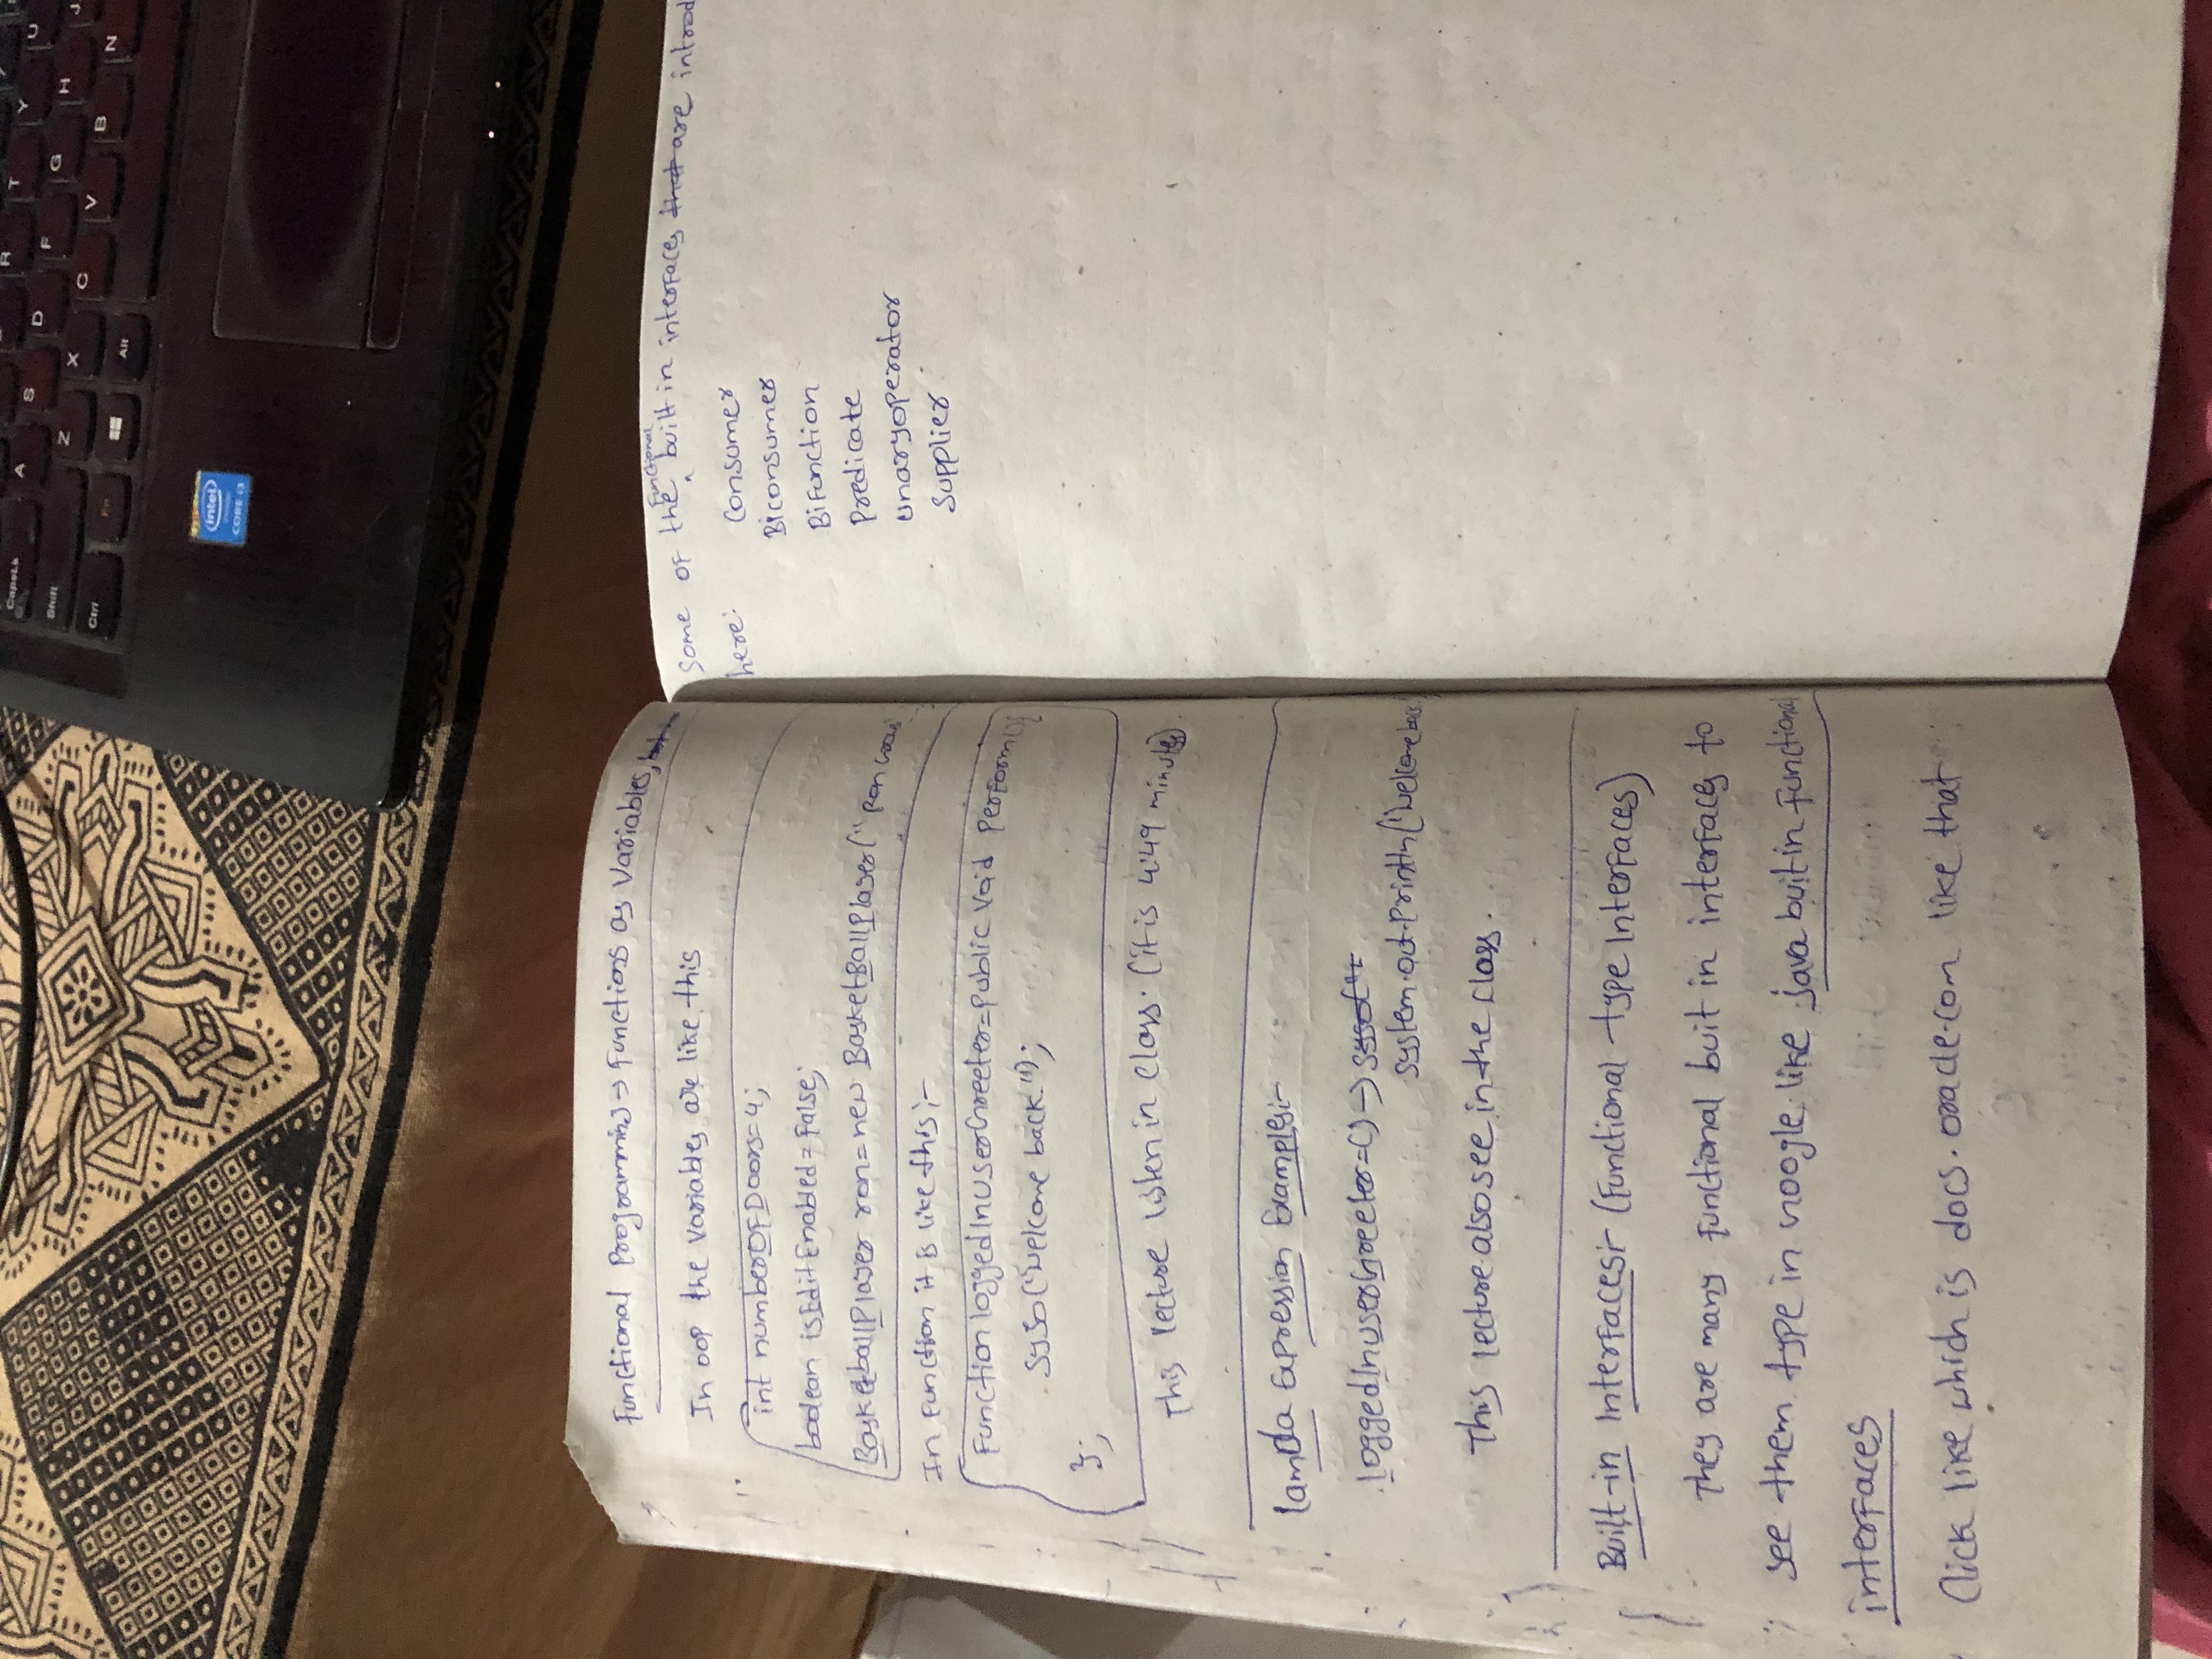 CapsLk A S D F G H J
R T Y U
Shift Z X C V B N
Ctrl Fn Alt
intel
inside
CORE i3
Functional Programming → Functions as Variables,
In oop the variables are like this
int numberOFDoors=4;
boolean isEditEnabled=False;
BasketballPlayer ron=new BasketBallPlayer("Ron
In Function it is like this;-
Function loggedInUserGreeter=Public Void Perform(){
Syso("Welcome back.");
};
This lecture listen in Class. (it is 4:49 minutes).
lamda Expression Examples:-
loggedInuserGreeter=() →
System.out.Println("Welcome back
This lecture also see in the Class.
Built-in Interfaces:- (Functional type Interfaces)
They are many Functional buit in interfaces to
see them type in Google like java buitin Functional
interfaces
Click like which is docs.oracle.com like that
Some of the Functional built in interfaces that are introd
here: Consumer
Biconsumer
BiFunction
Predicate
unaryoperator
Supplier